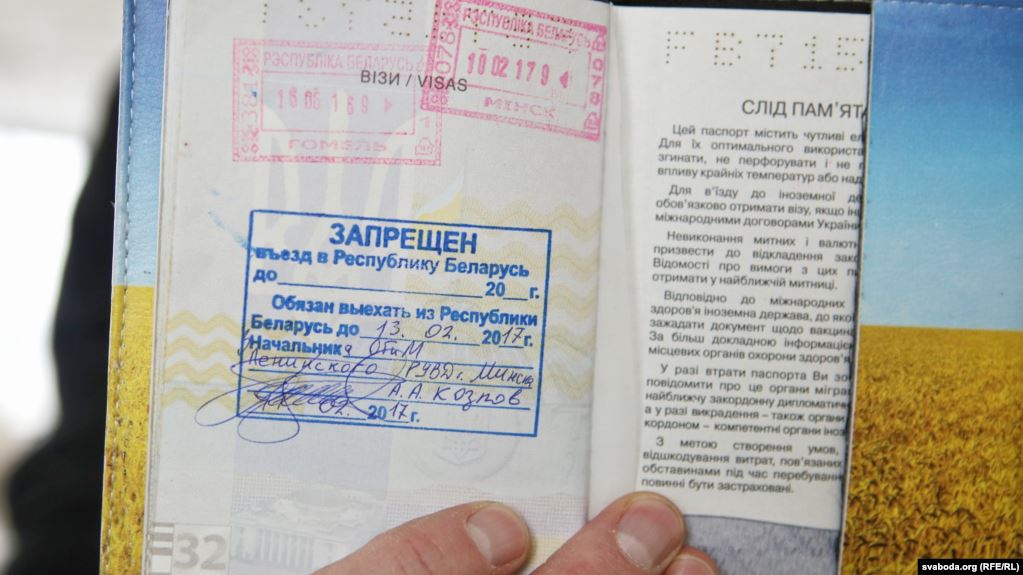 РЭСПУБЛІКА БЕЛАРУСЬ
078
10 02 17 9
078
МІНСК
РЭСПУБЛІКА БЕЛАРУСЬ
384
16 06 16 9
ГОМЕЛЬ
ВІЗИ / VISAS
ЗАПРЕЩЕН
въезд в Республику Беларусь
до 20 г.
Обязан выехать из Республики
Беларусь до 13. 02. 2017г.
Начальника ОГиМ
Ленинского РУВД г. Минска
А. А. Козлов
02. 2017г.
32
FB715
СЛІД ПАМ'ЯТ
Цей паспорт містить чутливі ел
Для їх оптимального використа
згинати, не перфорувати і не п
впливу крайніх температур або над
Для в'їзду до іноземної де
обов'язково отримати візу, якщо ін
міжнародними договорами Україн
Невиконання митних і валютн
призвести до відкладення зако
Відомості про вимоги з цих п
отримати у найближчій митниці.
Відповідно до міжнародних
здоров'я іноземна держава, до якої
зажадати документ щодо вакцин
За більш докладною інформаціє
місцевих органів охорони здоров'я
У разі втрати паспорта Ви зо
повідомити про це органи міграц
найближчу закордонну дипломатичн
а у разі викрадення – також органи
кордоном – компетентні органи іноз
З метою створення умов,
відшкодування витрат, пов'язаних
обставинами під час перебуванн
повинні бути застраховані.
svaboda.org (RFE/RL)